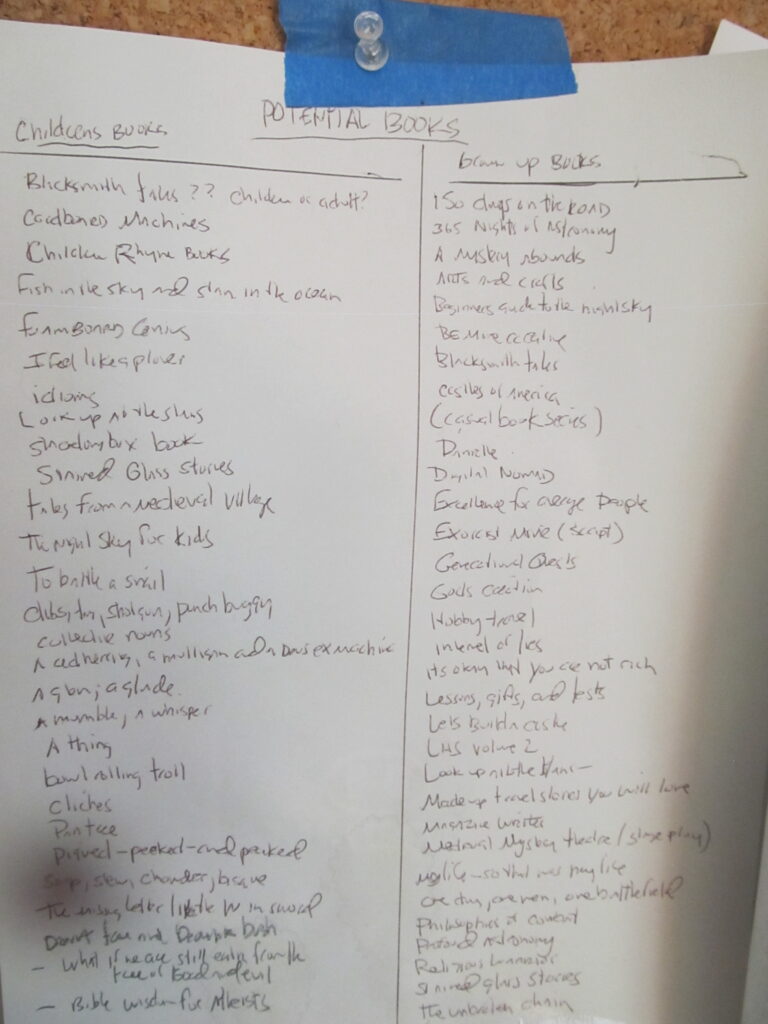 POTENTIAL BOOKS
Childrens Books
Blacksmith tales ?? Children or adult?
Cardboard Machines
Children Rhyme Books
Fish in the sky and stars in the ocean
foam Board Genius
I Feel like a plover
idioms
Look up at the stars
shadowbox book
Stained Glass Stories
tales from a medieval village
The Night Sky for Kids
To battle a snail
dibs, shotgun, punch buggy
collective nouns
a mulligan and a Deus ex machina
A mumble, A whisper
A thing
bowl rolling troll
Cliches
piqued-peeked-and peaked
soup, stew, chowder, bisque
The missing letter like the W in sword
- What if we are still eating from the
tree of Good and evil
- Bible wisdom for Atheists
Grown up Books
150 days on the ROAD
365 Nights of Astronomy
A mystery abounds
Arts and crafts
Beginners guide to the night sky
BE More creative
Blacksmith tales
castles of America
(casual book series)
Danielle
Digital Nomad
Excellence for average People
Exorcist Movie (script)
Generational Quests
Gods creation
Hobby-travel
internet of lies
its okay that you are not rich
Lessons, gifts, and tests
Lets Build a castle
LHS Volume 2
Look up at the stars-
Made up travel stories you will love
Magazine writer
Medieval Mystery theatre (stage play)
my life - so what was my life
one day, one man, one battlefield
Philosophies of consent
astronomy
Religious
stained glass stories
the unbroken chain